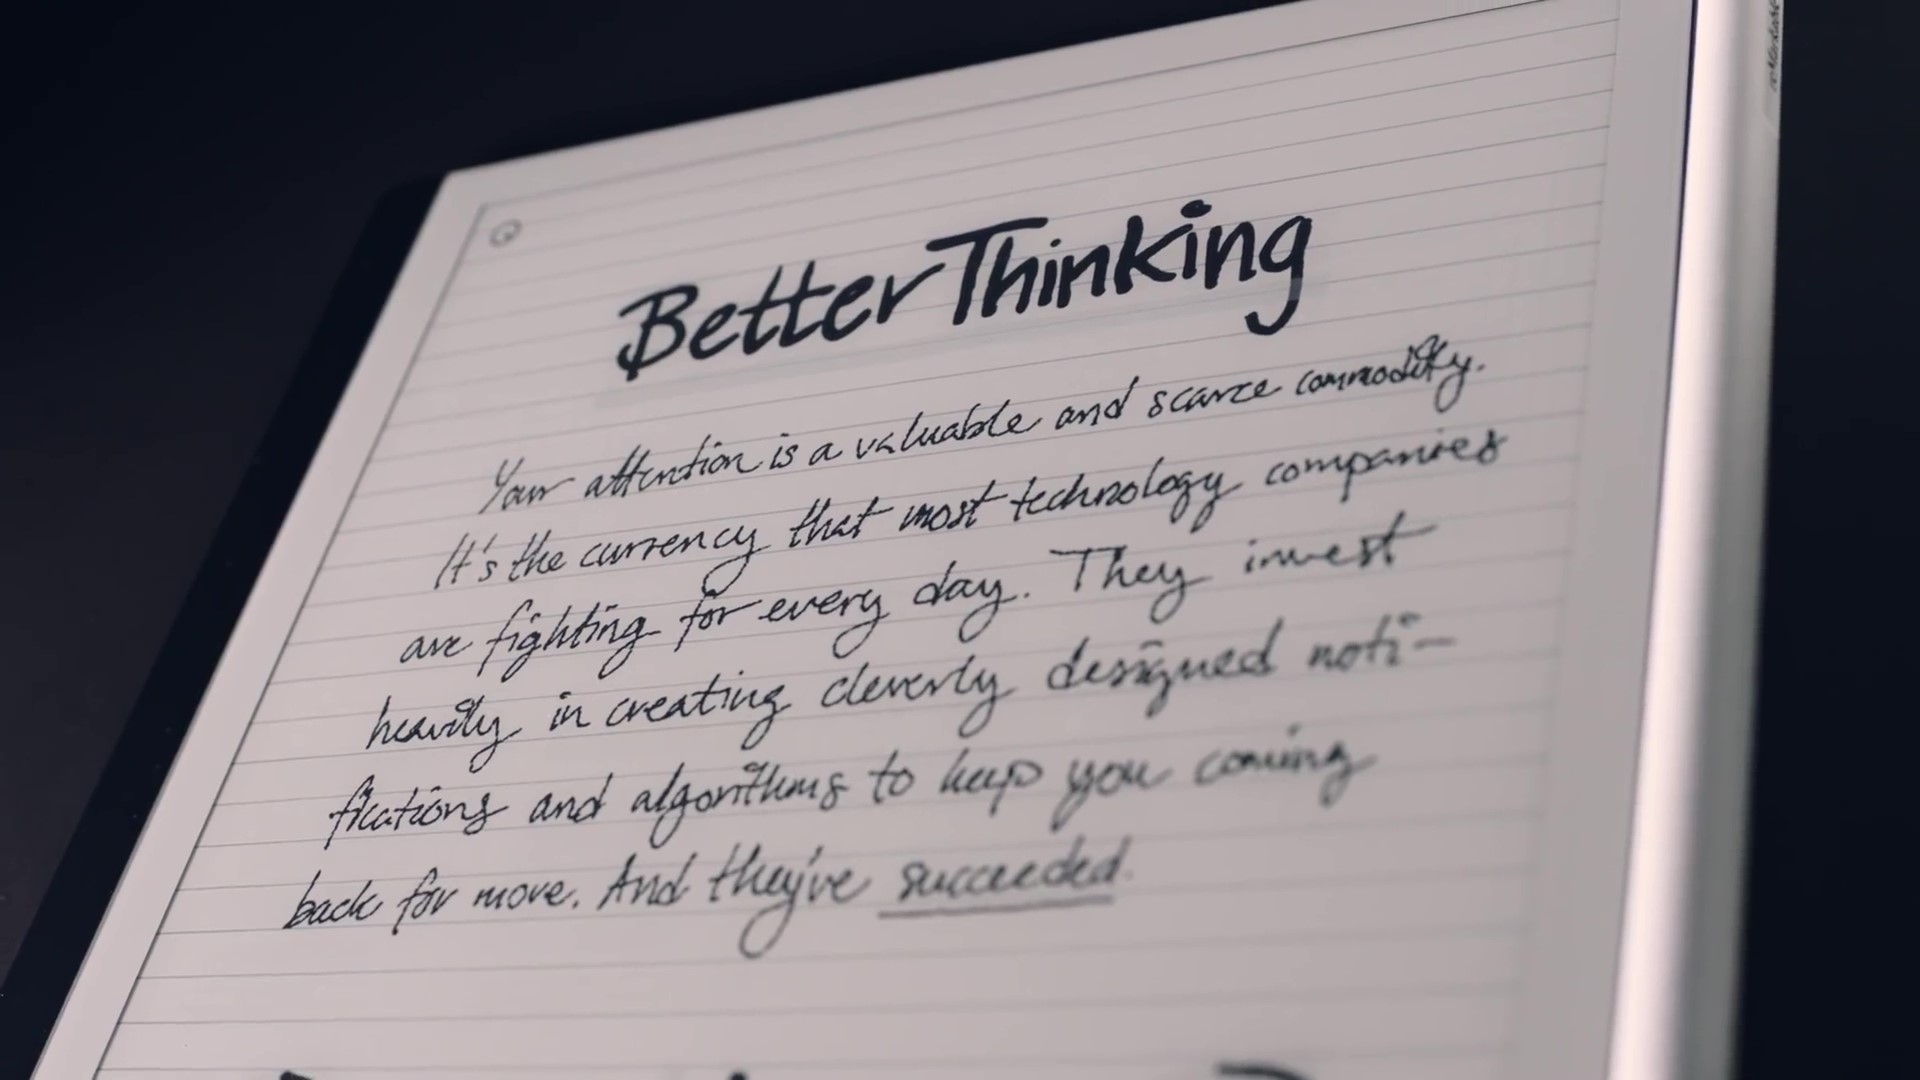 Better Thinking
Your attention is a valuable and scarce commodity.
It's the currency that most technology companies
are fighting for every day. They invest
heavily in creating cleverly designed noti-
fications and algorithms to keep you coming
back for more. And they've succeeded.